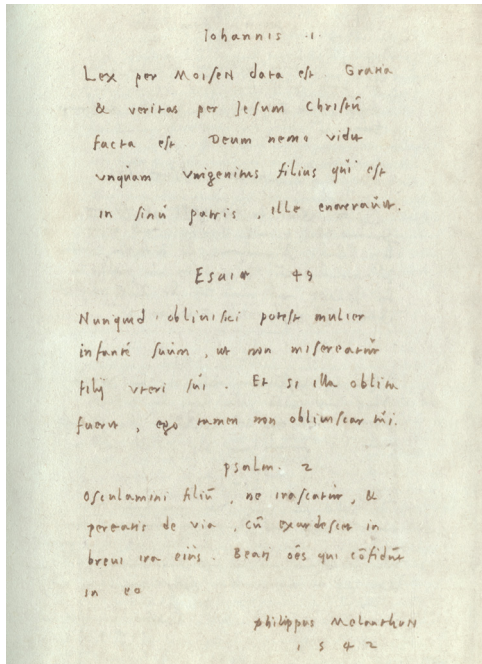 Iohannis .1.
Lex per MOISEN data est. Gratia
& veritas per Jesum Christū
facta est Deum nemo vidit
vnquam vnigenitus filius qui est
in sinū patris, ille enarrauit.
Esaiæ 49
Nunquid obliuisci potest mulier
infantē suum, ut non misereatur
filij vteri sui. Et si illa oblita
fuerit, ego tamen non obliuiscar tui.
psalm. 2
Osculamini filiū, ne irascatur, &
pereatis de via, cū exardescet in
breui ira eius. Beati oēs qui cōfidūt
in eo
philippus Melanthon
1542